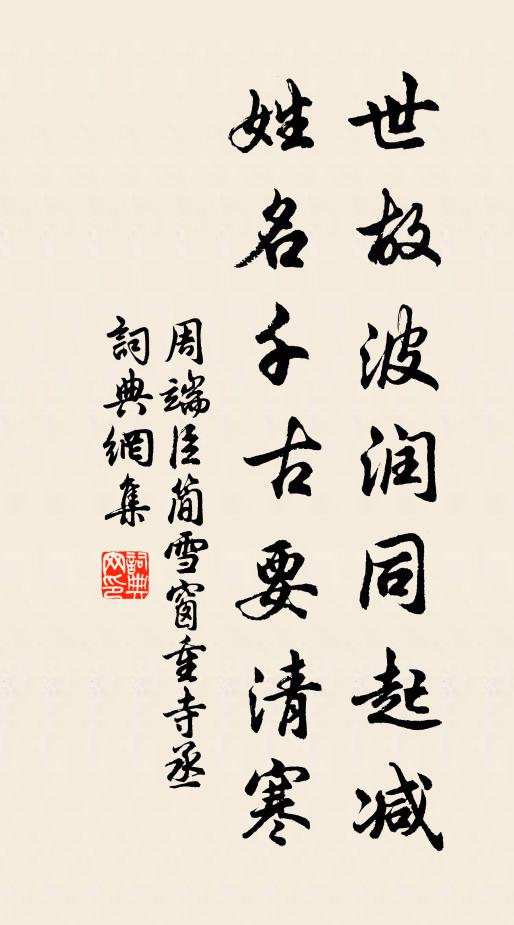 世故波润同起减
姓名千古要清寒
周端臣简雪窗董寺丞
詞典網集
詞典網印